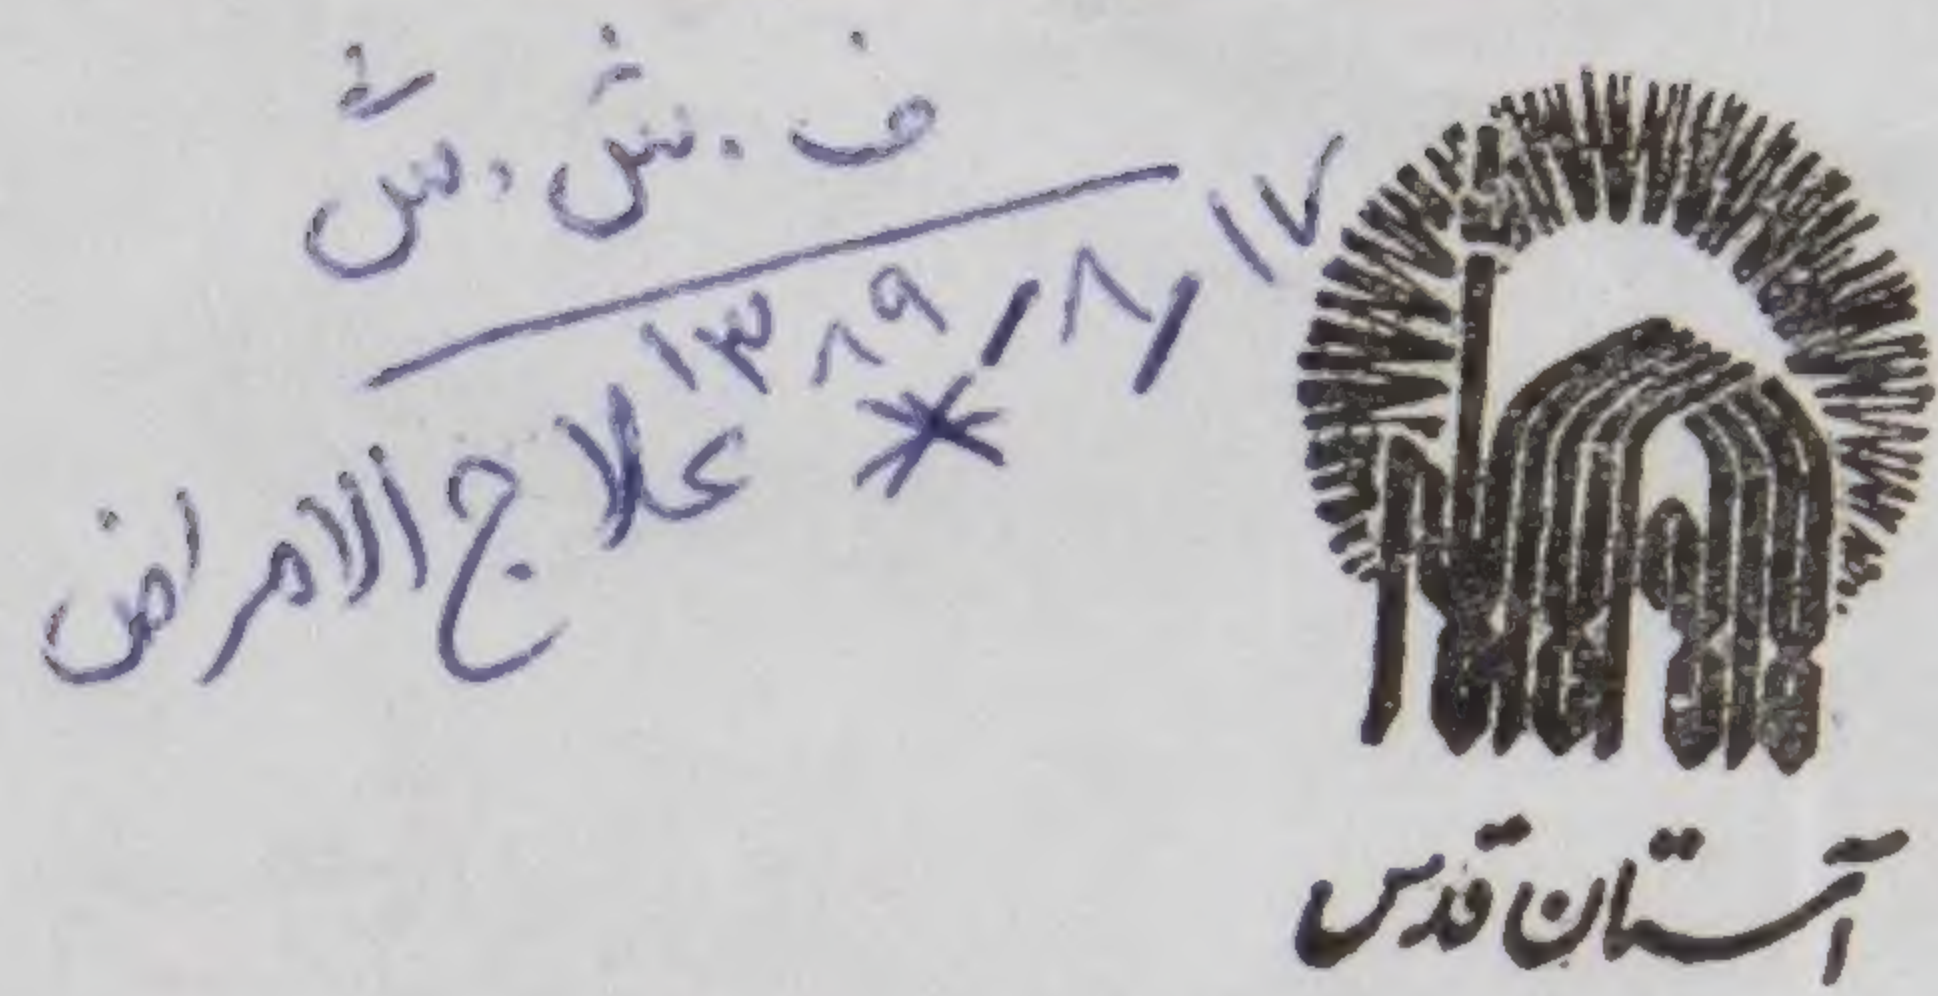 ف . ش . ش
۱۳۸۹/۸/۱۷
* علاج الامراض
آستان قدس